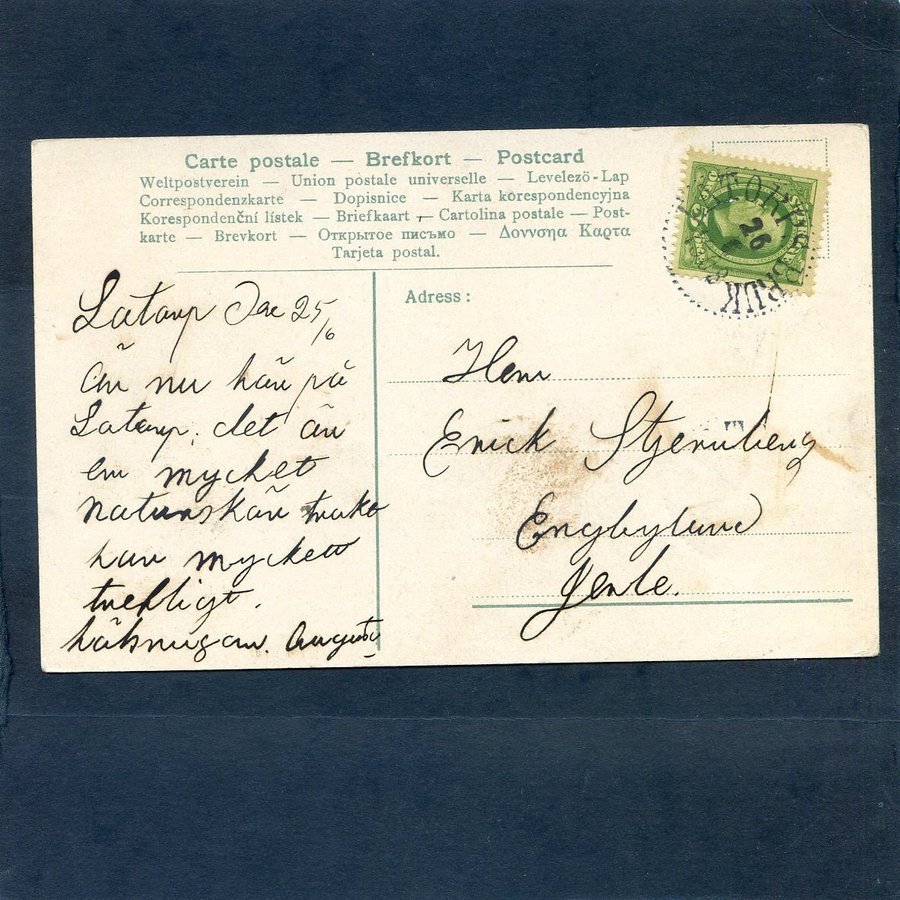 Carte postale — Brefkort — Postcard
Weltpostverein — Union postale universelle — Levelezö-Lap
Correspondenzkarte — Dopisnice — Karta korespondencyjna
Korespondenční lístek — Briefkaart — Cartolina postale — Post-
karte — Brevkort — Открытое письмо — Δοννσηα Καρτα
Tarjeta postal.
LATORPS BRUK
26
Latorp Den 25/6
är nu här på
Latorp. det är
en mycket
naturskön trakt
har mycket
trefligt.
hälsningar. Augusta
Adress:
Herr
Erick Stjernberg
Engbylund
Gefle.